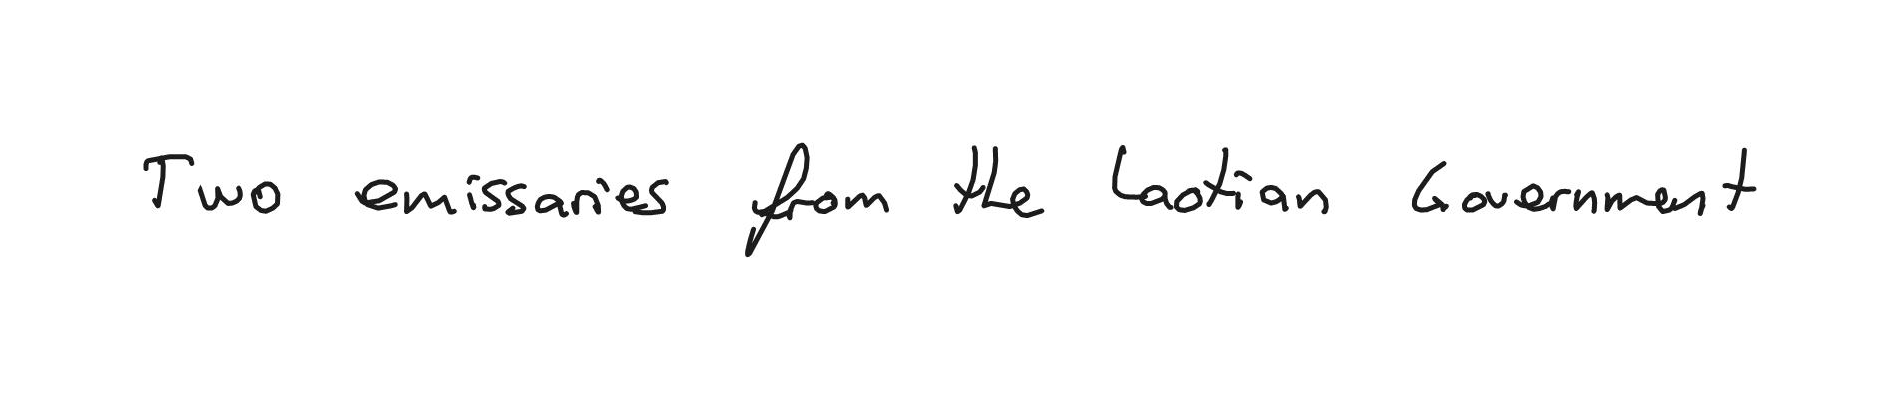 Two emissaries from the Laotian Government